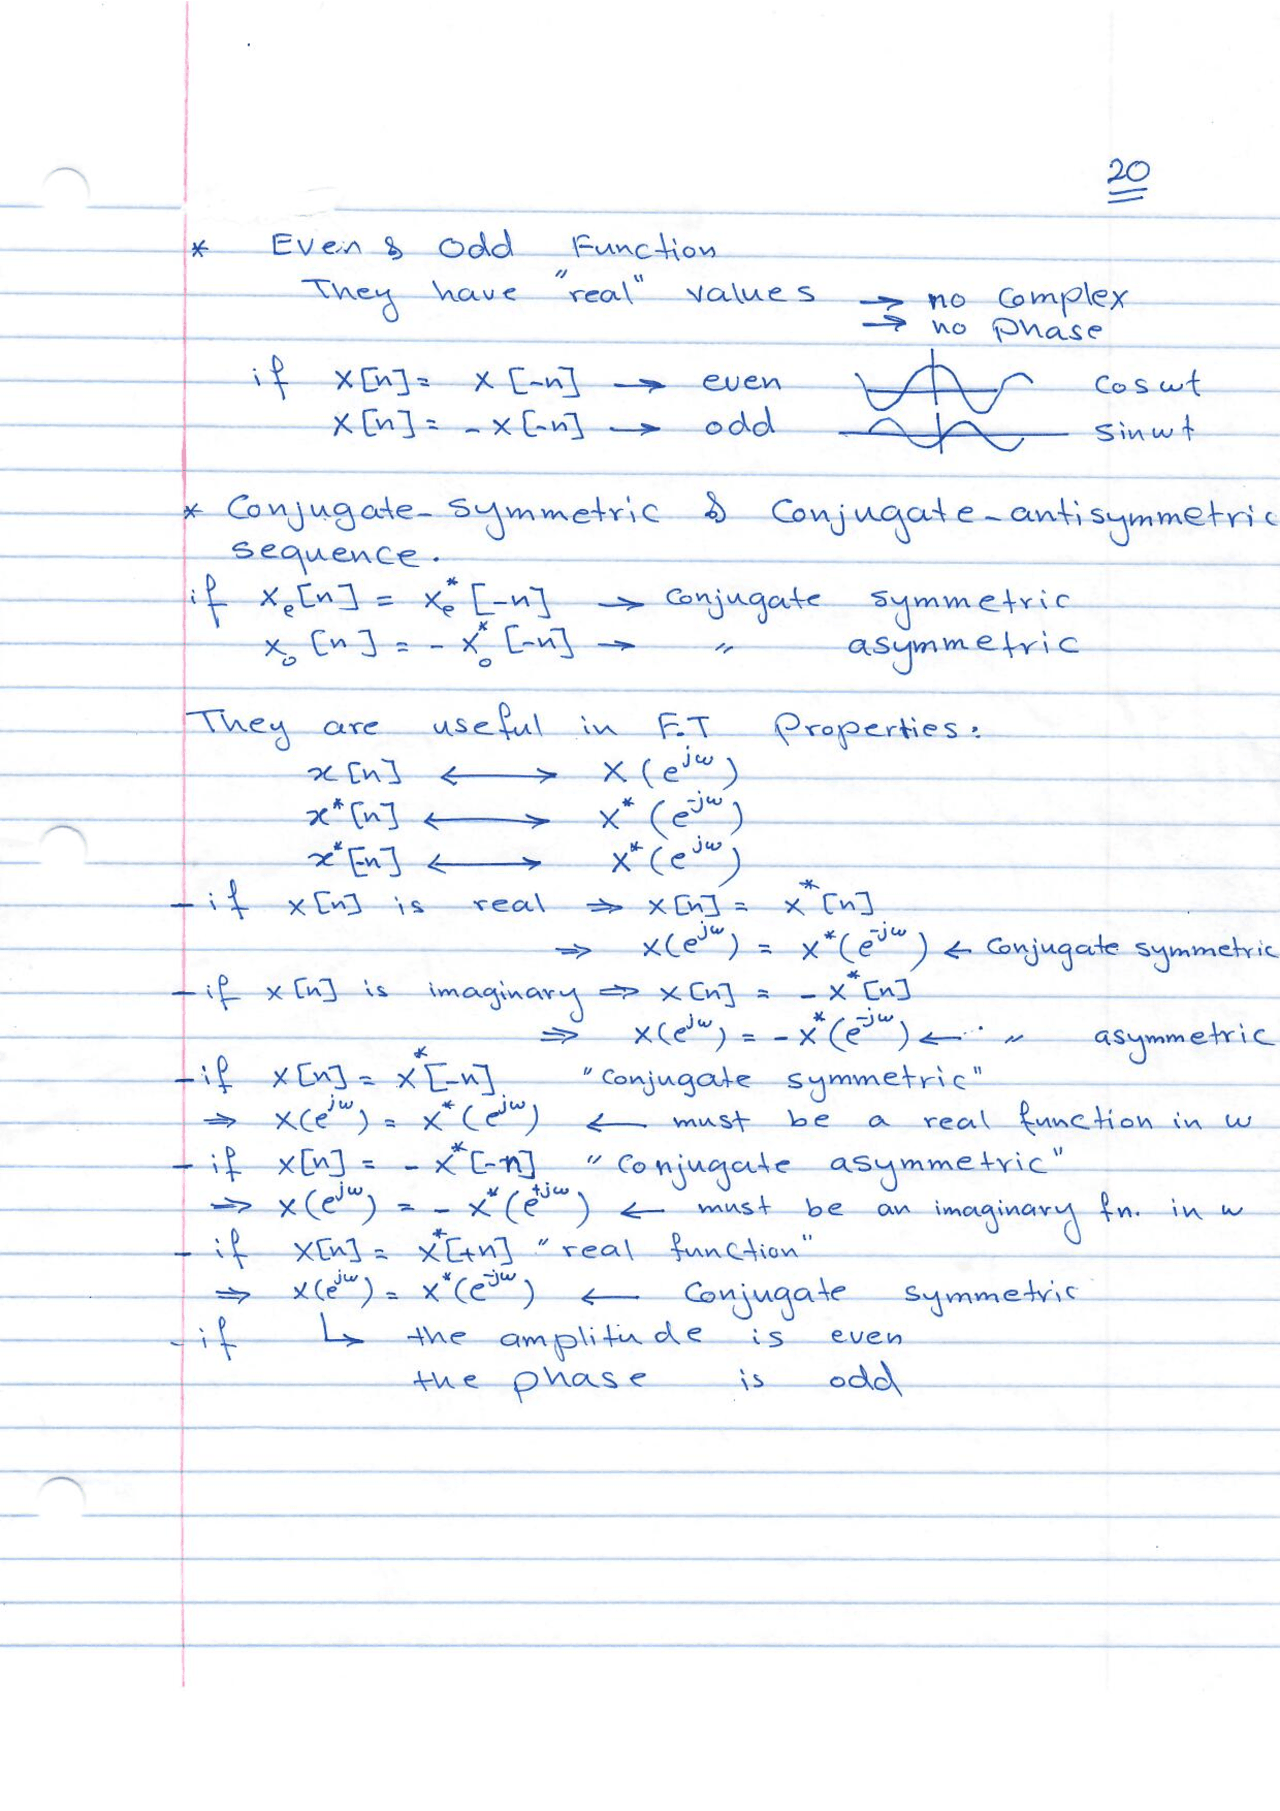 20
* Even & Odd Function
They have "real" values → no complex
→ no phase
if x[n] = x[-n] → even cos ωt
x[n] = - x[-n] → odd sin ωt
* Conjugate-symmetric & Conjugate-antisymmetric
sequence.
if xₑ[n] = xₑ*[-n] → conjugate symmetric
x₀[n] = - x₀*[-n] → " asymmetric
They are useful in F.T Properties:
x[n] ⟷ X(e^{jω})
x*[n] ⟷ X*(e^{-jω})
x*[-n] ⟷ X*(e^{jω})
- if x[n] is real ⇒ x[n] = x*[n]
⇒ X(e^{jω}) = X*(e^{-jω}) ← Conjugate symmetric
- if x[n] is imaginary ⇒ x[n] = - x*[n]
⇒ X(e^{jω}) = - X*(e^{-jω}) ← " asymmetric
- if x[n] = x*[-n] "conjugate symmetric"
⇒ X(e^{jω}) = X*(e^{jω}) ← must be a real function in ω
- if x[n] = - x*[-n] "conjugate asymmetric"
⇒ X(e^{jω}) = - X*(e^{+jω}) ← must be an imaginary fn. in ω
- if x[n] = x*[+n] "real function"
⇒ X(e^{jω}) = X*(e^{-jω}) ← Conjugate symmetric
- if ↳ the amplitude is even
the phase is odd